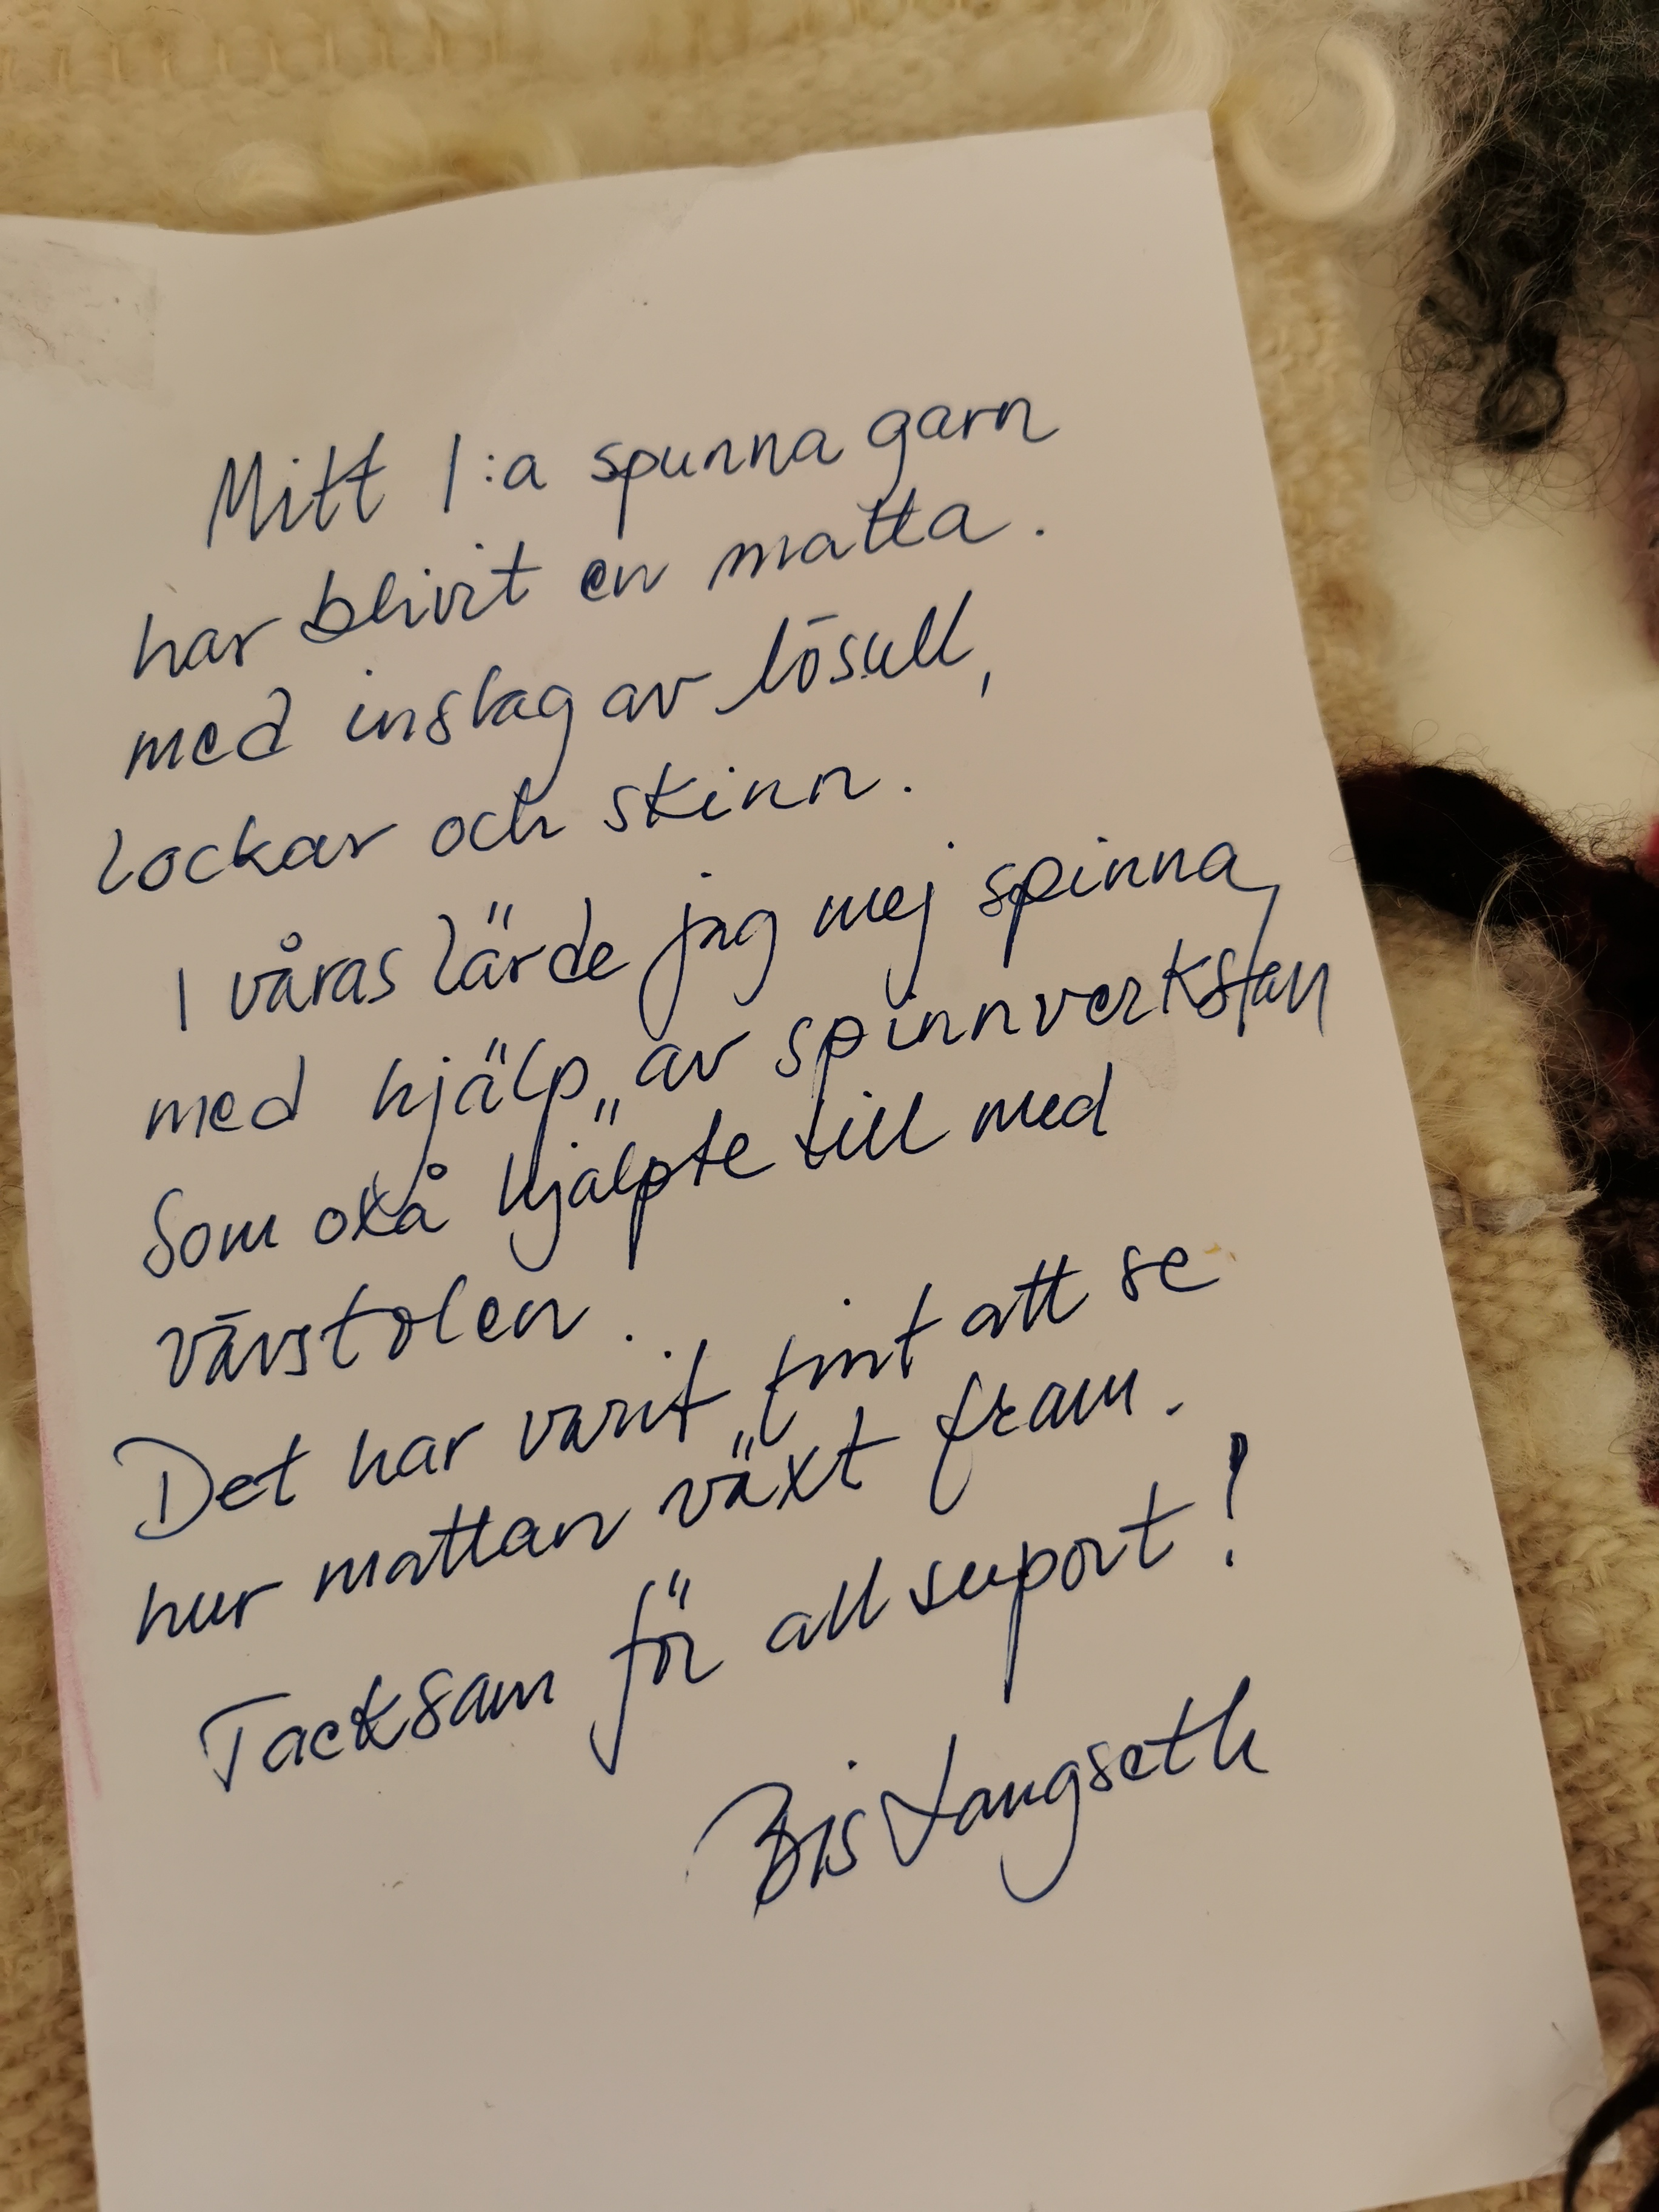 Mitt 1:a spunna garn
har blivit en matta.
med inslag av lösull,
lockar och skinn.
I våras lärde jag mej spinna,
med hjälp av spinnverkstan
som okså hjälpte till med
vävstolen.
Det har varit fint att se
hur mattan växt fram.
Tacksam för all suport!
Bis Langseth